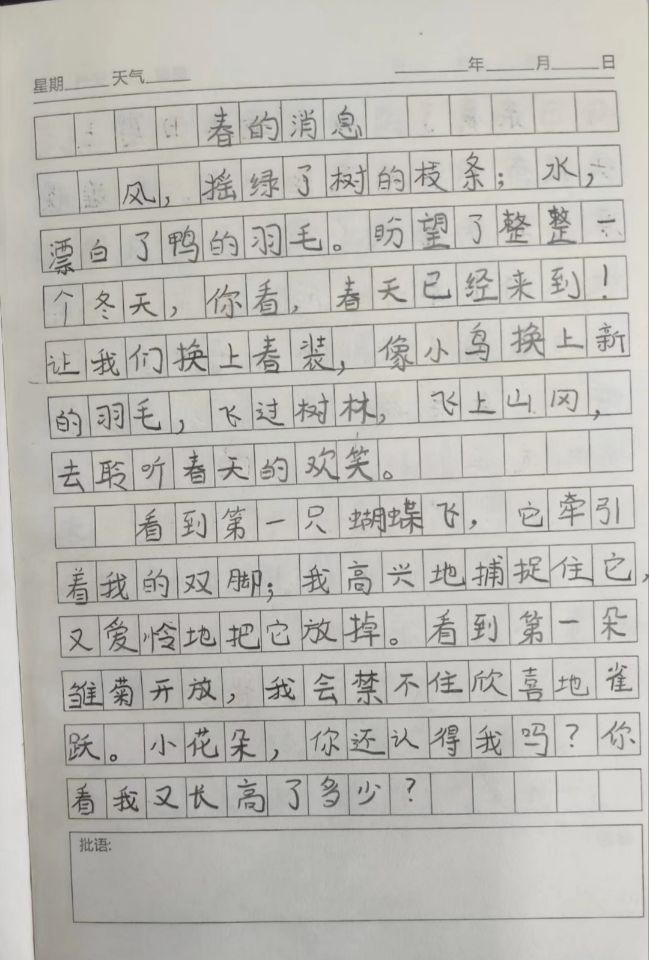 星期____天气____ ____年____月____日
春的消息
风，摇绿了树的枝条；水，
漂白了鸭的羽毛。盼望了整整一
个冬天，你看，春天已经来到！
让我们换上春装，像小鸟换上新
的羽毛，飞过树林，飞上山冈，
去聆听春天的欢笑。
看到第一只蝴蝶飞，它牵引
着我的双脚；我高兴地捕捉住它，
又爱怜地把它放掉。看到第一朵
雏菊开放，我会禁不住欣喜地雀
跃。小花朵，你还认得我吗？你
看我又长高了多少？
批语: